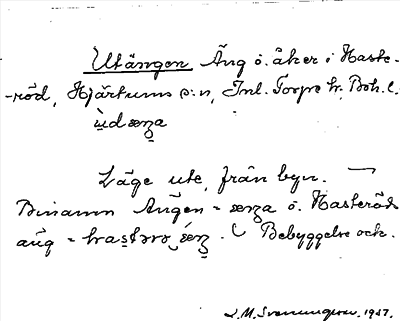 Utängen Äng o. åker i Haste-
-röd, Hjärtums s:n, Inl. Torpe hr, Boh. l.
ùdæŋa
Läge ute, från byn.
Binamn Ängen = æŋa o. Hasteröds
äng = hastərə æŋ. Bebyggelse och.
J. M. Svenungson. 1927.